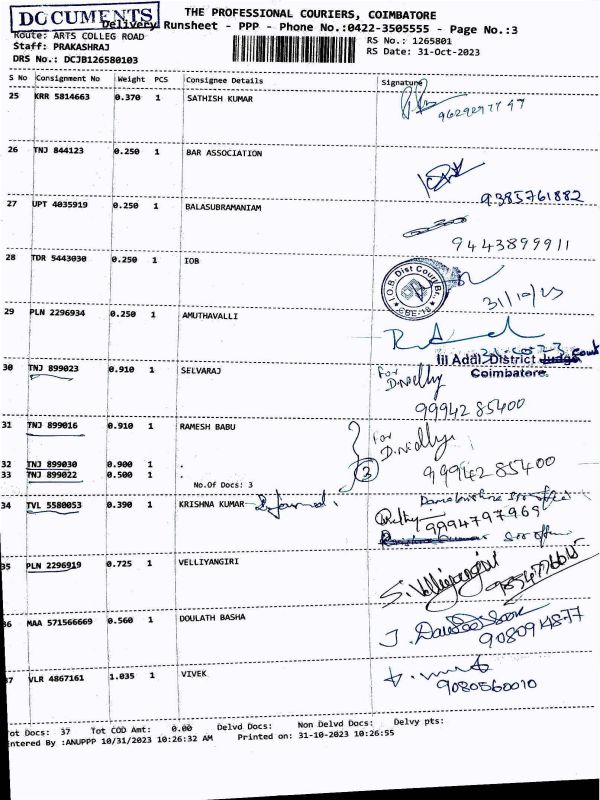 DOCUMENTS
THE PROFESSIONAL COURIERS, COIMBATORE
Delivery Runsheet - PPP - Phone No.:0422-3505555 - Page No.:3
Route: ARTS COLLEG ROAD
Staff: PRAKASHRAJ
DRS No.: DCJB126580103
RS No.: 1265801
RS Date: 31-Oct-2023
S No Consignment No Weight PCS Consignee Details Signature
25 KRR 5814663 0.370 1 SATHISH KUMAR
26 TNJ 844123 0.250 1 BAR ASSOCIATION
9385761882
27 UPT 4035919 0.250 1 BALASUBRAMANIAM
9443899911
28 TDR 5443030 0.250 1 IOB
I.O.B. Dist Court Br.
CBE-18
31/10/23
29 PLN 2296934 0.250 1 AMUTHAVALLI
III Addl. District Judge Court
Coimbatore.
30 TNJ 899023 0.910 1 SELVARAJ
For
9994285400
31 TNJ 899016 0.910 1 RAMESH BABU
For
32 TNJ 899030 0.900 1 .
33 TNJ 899022 0.500 1
3
9994285400
No.Of Docs: 3
34 TVL 5580053 0.390 1 KRISHNA KUMAR
9994797969
35 PLN 2296919 0.725 1 VELLIYANGIRI
S. Velliyangiri
36 MAA 571566669 0.560 1 DOULATH BASHA
9080914877
37 VLR 4867161 1.035 1 VIVEK
9080560010
Tot Docs: 37 Tot COD Amt: 0.00 Delvd Docs: Non Delvd Docs: Delvy pts:
Entered By :ANUPPP 10/31/2023 10:26:32 AM Printed on: 31-10-2023 10:26:55